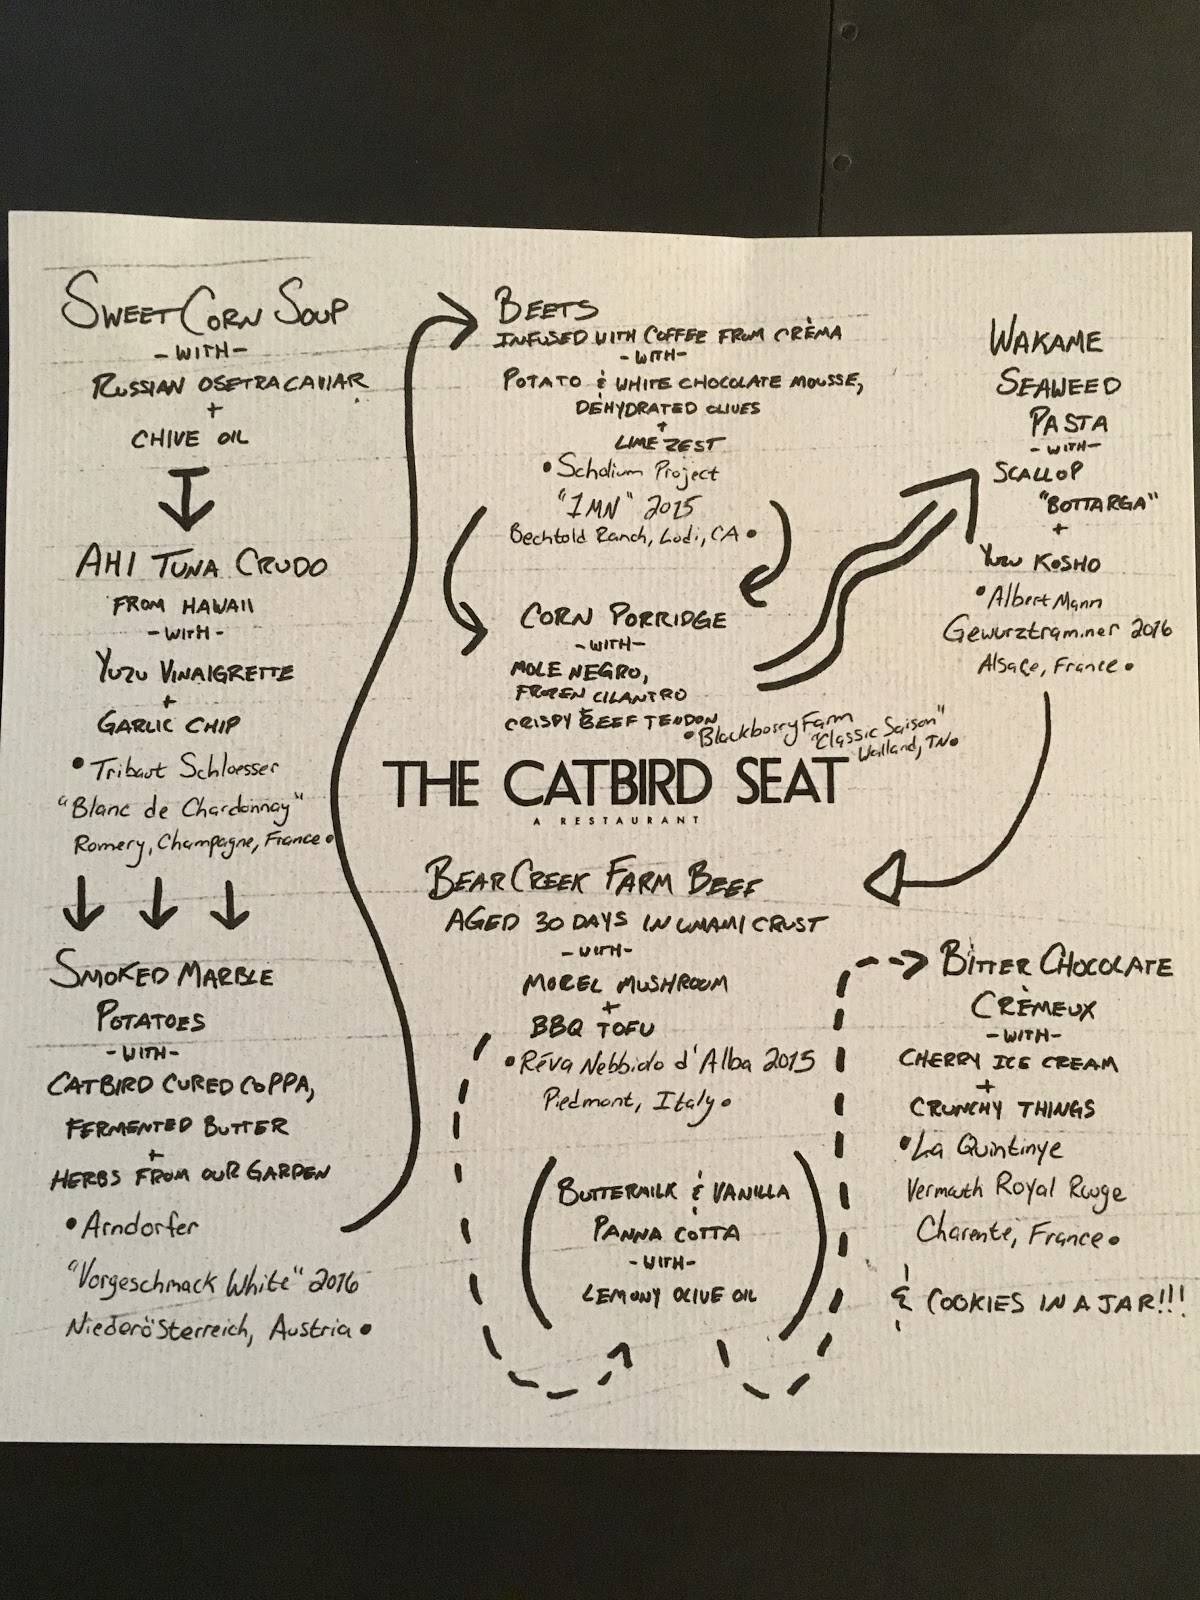 SWEET CORN SOUP
-WITH-
RUSSIAN OSETRA CAVIAR
+
CHIVE OIL
AHI TUNA CRUDO
FROM HAWAII
-WITH-
YUZU VINAIGRETTE
+
GARLIC CHIP
•Tribaut Schloesser
"Blanc de Chardonnay"
Romery, Champagne, France•
SMOKED MARBLE
POTATOES
-WITH-
CATBIRD CURED COPPA,
FERMENTED BUTTER
+
HERBS FROM OUR GARDEN
•Arndorfer
"Vorgeschmack White" 2016
Niederösterreich, Austria•
BEETS
INFUSED WITH COFFEE FROM CRÈMA
-WITH-
POTATO & WHITE CHOCOLATE MOUSSE,
DEHYDRATED OLIVES
+
LIME ZEST
•Scholium Project
"1MN" 2015
Bechtold Ranch, Lodi, CA•
CORN PORRIDGE
-WITH-
MOLE NEGRO,
FROZEN CILANTRO
+
CRISPY BEEF TENDON
•Blackberry Farm
"Classic Saison"
Walland, TN•
WAKAME
SEAWEED
PASTA
-WITH-
SCALLOP
"BOTTARGA"
+
YUZU KOSHO
•Albert Mann
Gewurztraminer 2016
Alsace, France•
THE CATBIRD SEAT
A RESTAURANT
BEAR CREEK FARM BEEF
AGED 30 DAYS IN UMAMI CRUST
-WITH-
MOREL MUSHROOM
+
BBQ TOFU
•Réva Nebbiolo d'Alba 2015
Piedmont, Italy•
BUTTERMILK & VANILLA
PANNA COTTA
-WITH-
LEMONY OLIVE OIL
BITTER CHOCOLATE
CRÈMEUX
-WITH-
CHERRY ICE CREAM
+
CRUNCHY THINGS
•La Quintinye
Vermouth Royal Rouge
Charente, France•
& COOKIES IN A JAR!!!